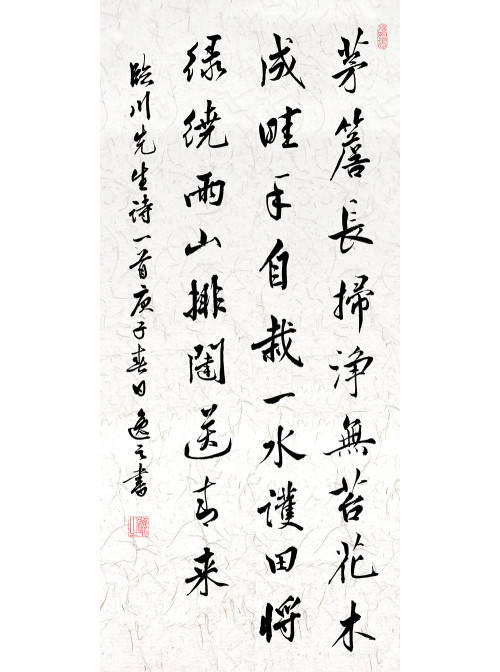 茅簷長掃淨無苔花木
成畦手自栽一水護田將
綠繞兩山排闥送青来
臨川先生詩一首庚子春日逸之書